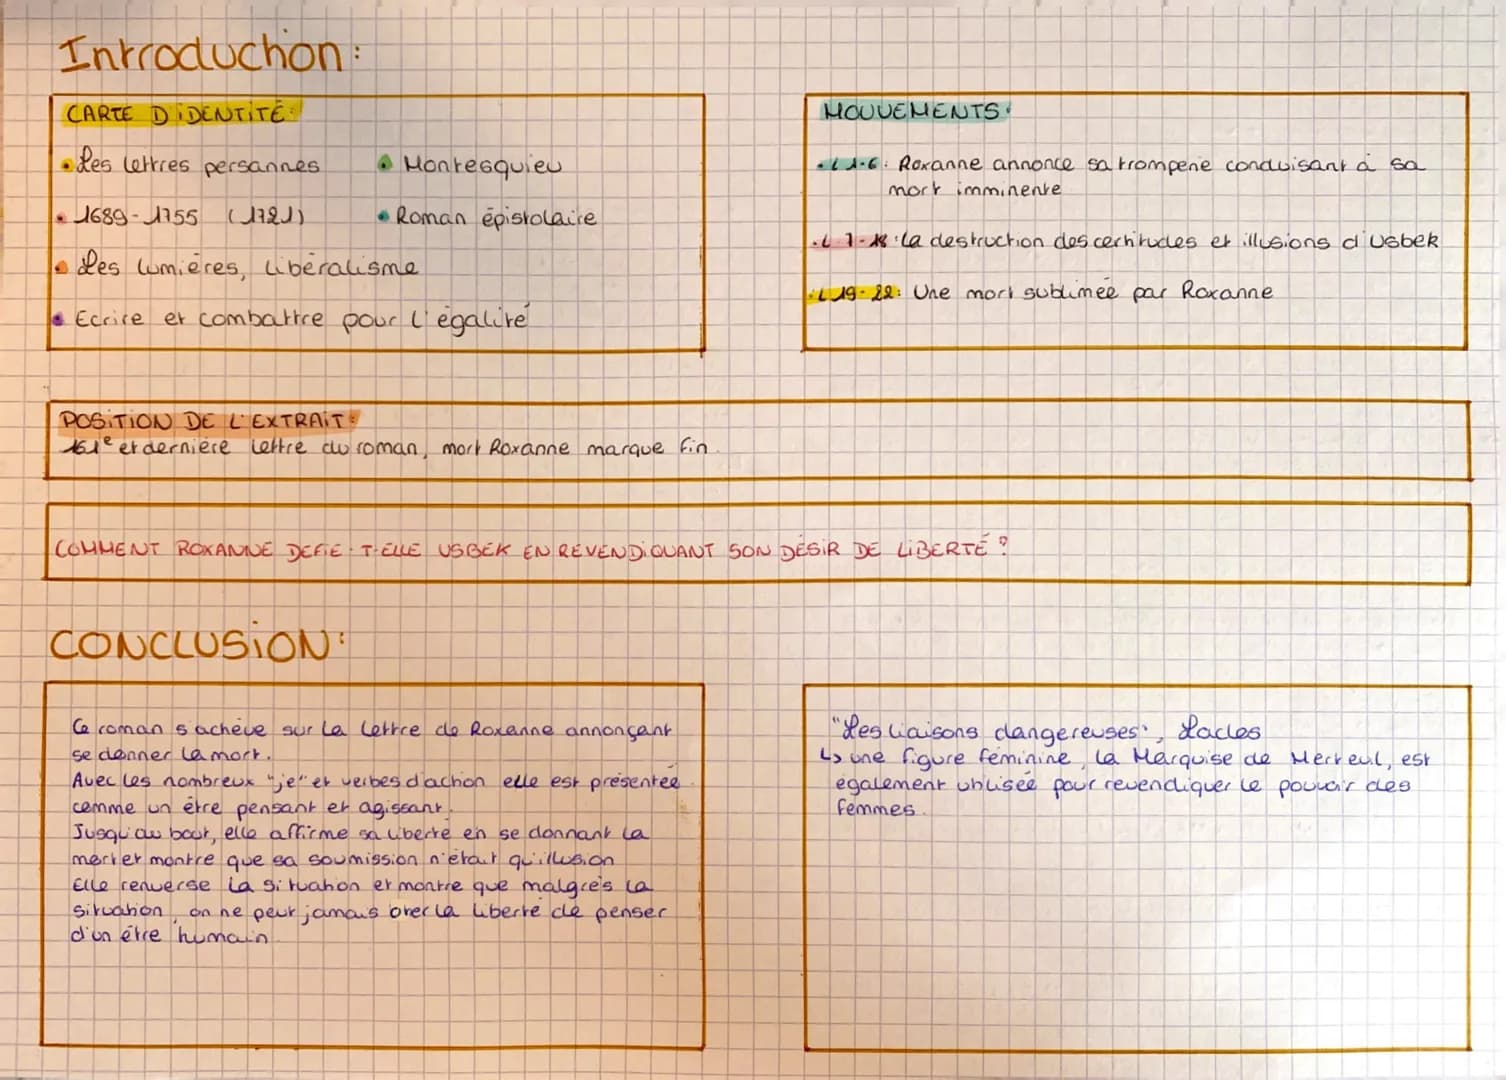 Introduction:
CARTE D'IDENTITÉ:
• Les lettres persannes
• Montesquieu
• 1689-1755 (1721)
• Roman épistolaire
• Les lumières, libéralisme
• Ecrire et combattre pour l'égalité
MOUVEMENTS:
• L 1-6: Roxanne annonce sa tromperie conduisant à sa
mort imminente
• L 7-18: La destruction des certitudes et illusions d'Usbek
• L 19-22: Une mort sublimée par Roxanne
POSITION DE L'EXTRAIT:
161e et dernière lettre du roman, mort Roxanne marque fin.
COMMENT ROXANNE DEFIE-T-ELLE USBEK EN REVENDIQUANT SON DÉSIR DE LIBERTÉ ?
CONCLUSION:
Ce roman s'achève sur la lettre de Roxanne annonçant
se donner la mort.
Avec les nombreux "je" et verbes d'action elle est présentée
comme un être pensant et agissant.
Jusqu'au bout, elle affirme sa liberté en se donnant la
mort et montre que sa soumission n'était qu'illusion
Elle renverse la situation et montre que malgrés la
situation, on ne peut jamais oter la liberté de penser
d'un être humain.
"Les liaisons dangereuses", Laclos
↳ une figure féminine, la Marquise de Merteuil, est
également utilisée pour revendiquer le pouvoir des
femmes.